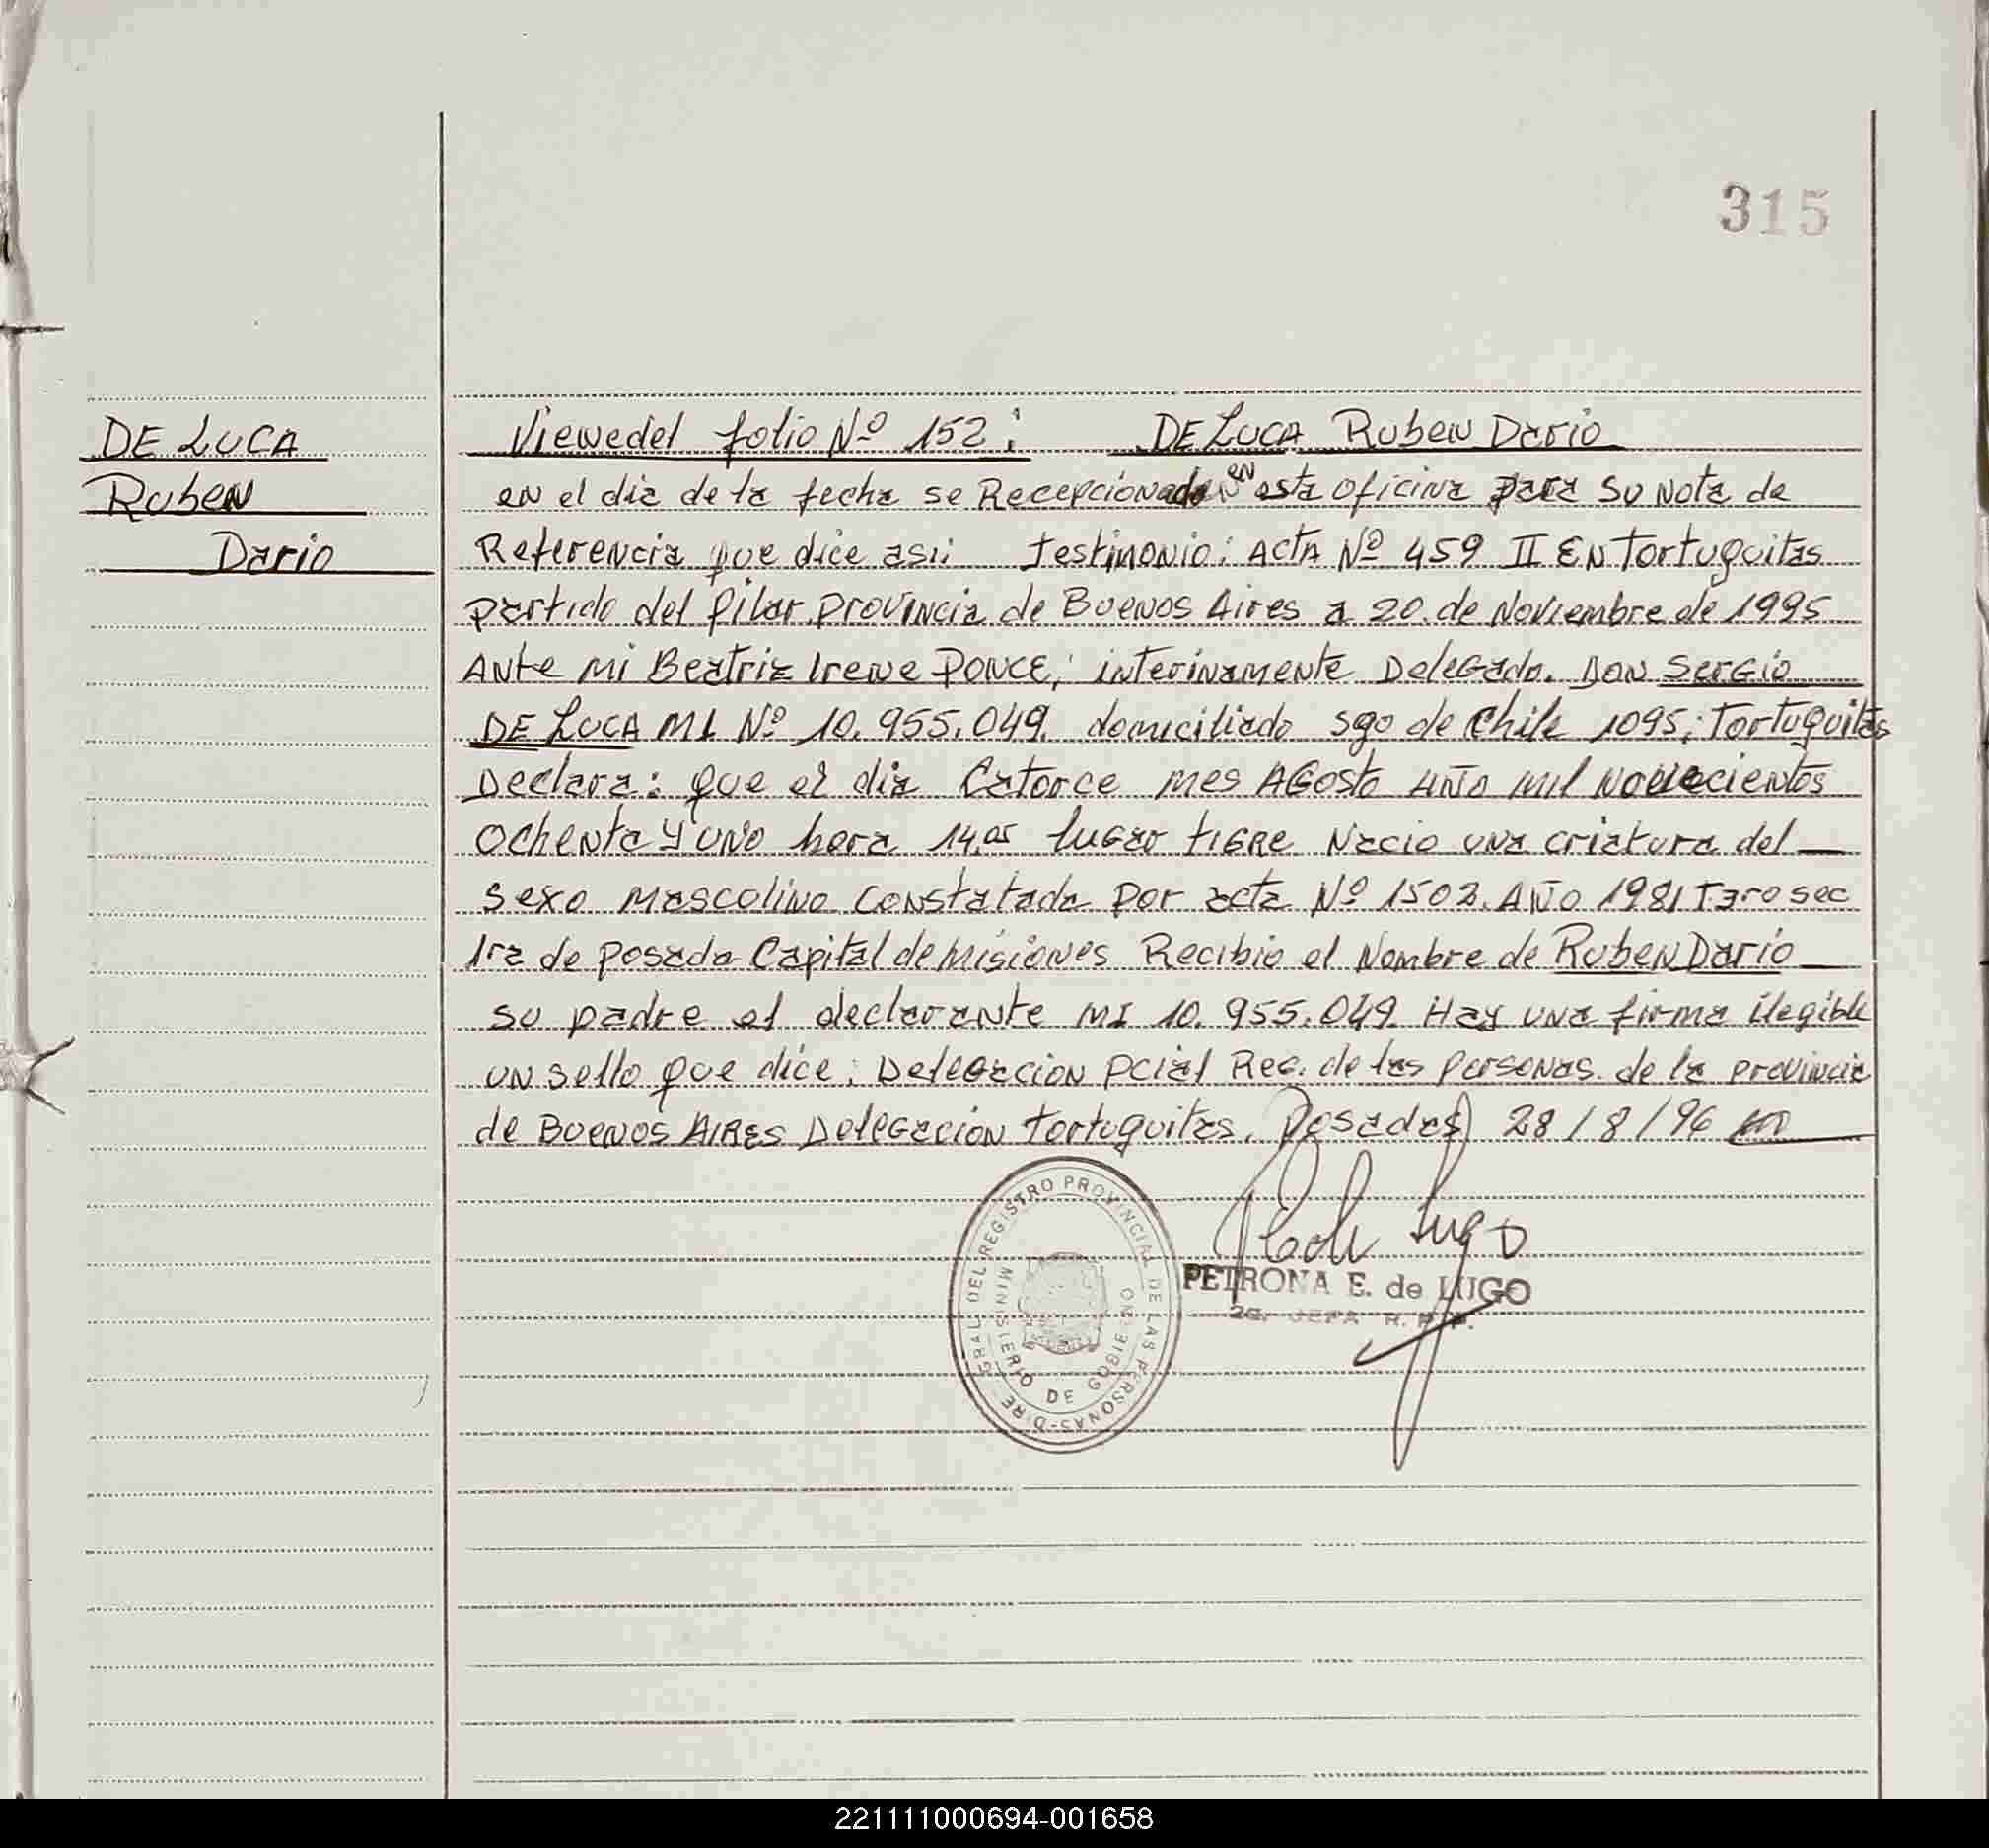 315
DE LUCA
Ruben
Dario
Viene del folio Nº 152: DE LUCA Ruben Dario
en el dia de la fecha se Recepcionado en esta oficina para su nota de
Referencia que dice asi: Testimonio: ACTA Nº 459 II EN Tortuguitas
partido del Pilar provincia de Buenos Aires a 20 de Noviembre de 1995
Ante mi Beatriz Irene PONCE, interinamente Delegado. DON SERGIO
DE LUCA MI Nº 10.955.049. domiciliado sgo de Chile 1095; Tortuguitas
Declara: que el dia Catorce mes AGosto Año mil Novecientos
Ochenta y uno hora 14,05 lugar TIGRE Nacio una criatura del
sexo Mascolino constatada por acta Nº 1502. AÑO 1981 T3ro sec
1ra de posada Capital de Misiones Recibio el Nombre de Ruben Dario
su padre el declarante MI 10.955.049. Hay una firma ilegible
un sello que dice: Delegacion Pcial Reg. de las personas de la provincia
de BUENOS AIRES Delegacion Tortuguitas. Posadas 28/8/96
Lugo
PETRONA E. de LUGO
JEFA R. P. P.
REGISTRO PROVINCIAL DE LAS PERSONAS-DIRE
MINISTERIO DE GOBIERNO
221111000694-001658